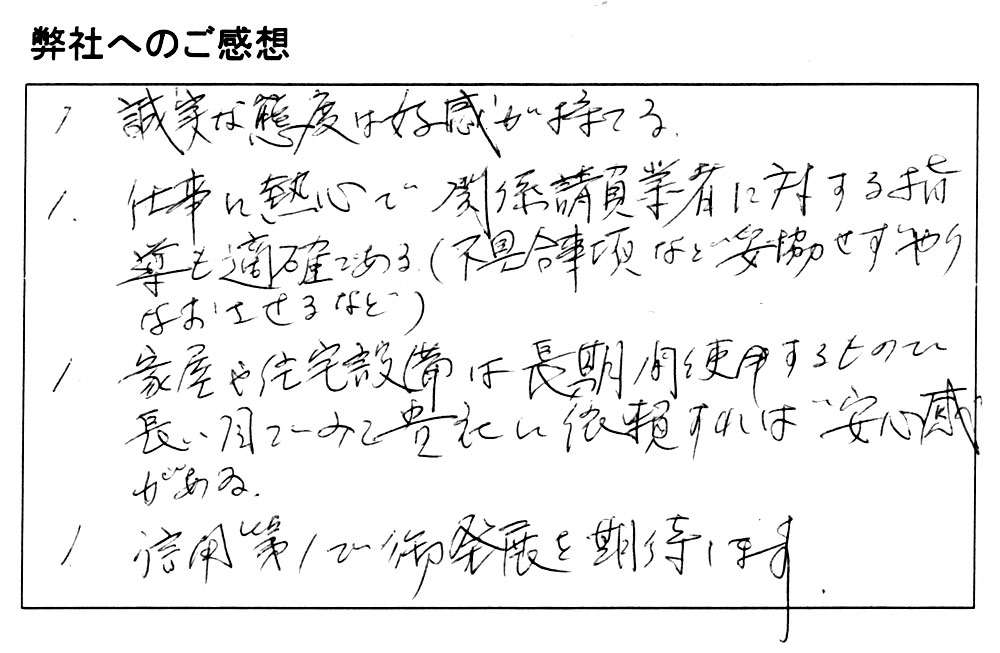 弊社へのご感想
1 誠実な態度は好感が持てる.
1. 仕事に熱心で関係請負業者に対する指
導も適確である(不具合事項など妥協せずやり
なおさせるなど)
1. 家屋や住宅設備は長期間使用するもので
長い目でみて貴社に依頼すれば安心感
がある.
1 信用第1で御発展を期待します.